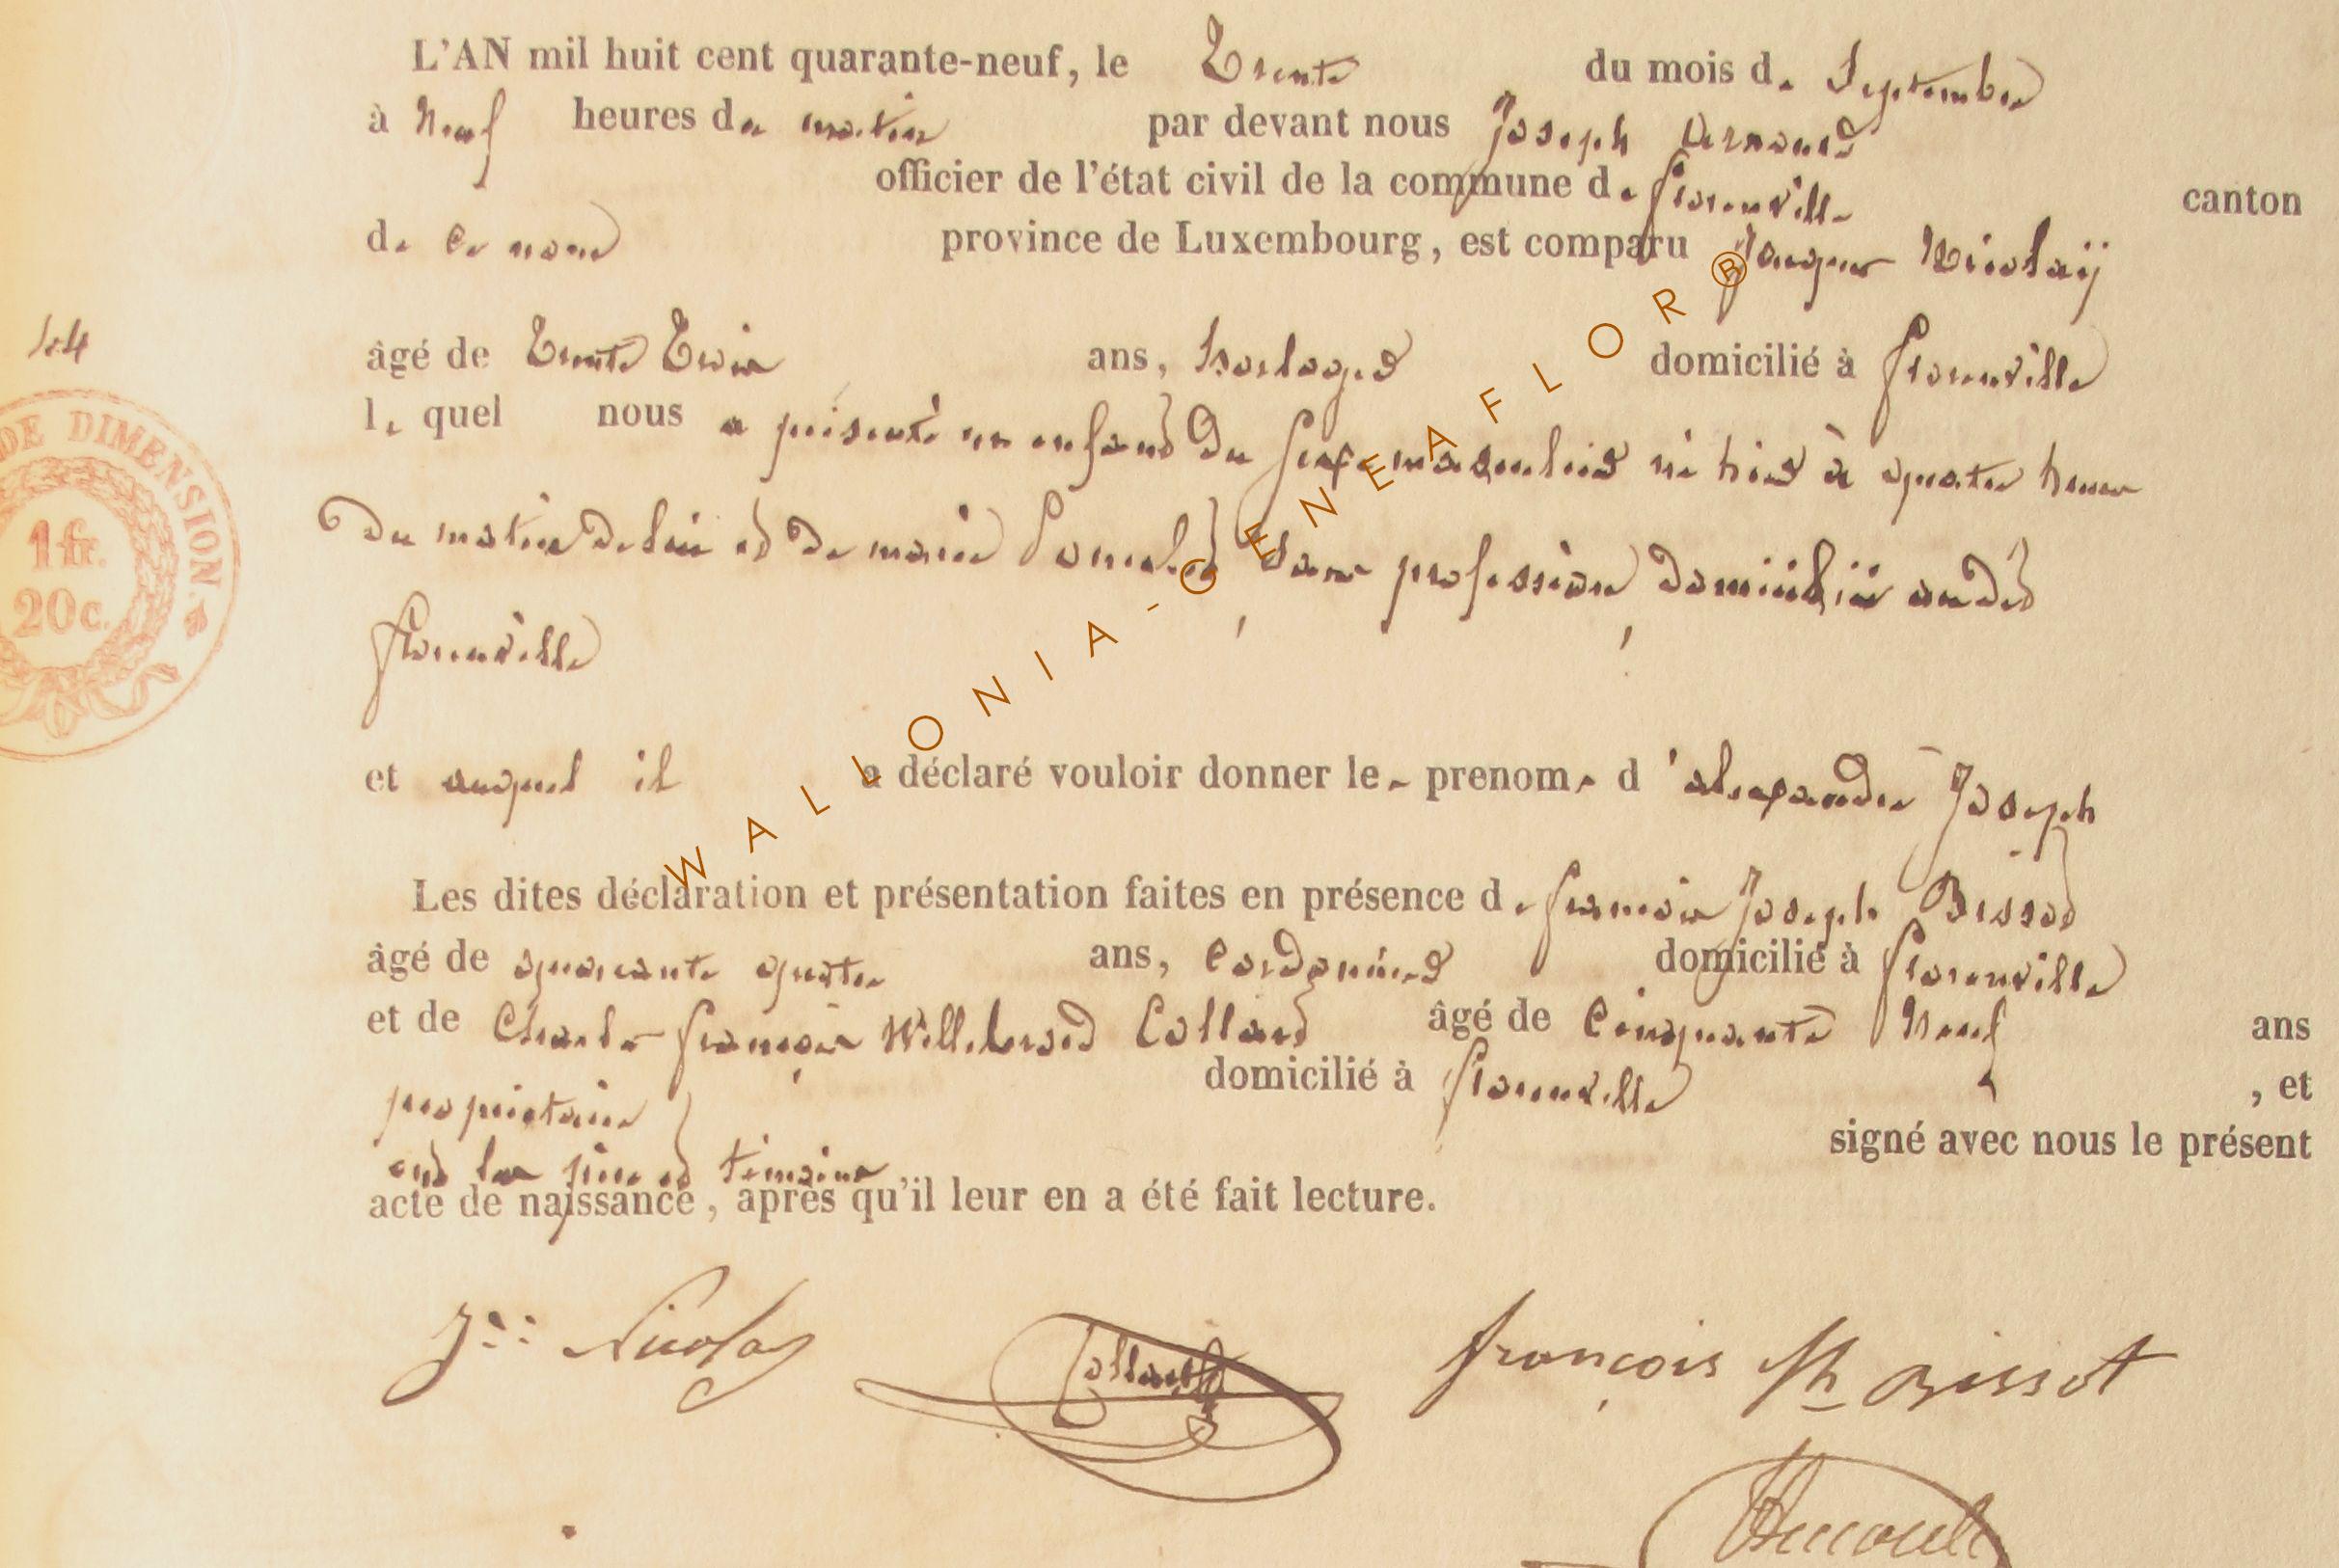 L'AN mil huit cent quarante-neuf, le Trente du mois de Septembre
à Neuf heures du matin par devant nous Joseph Arnould
officier de l'état civil de la commune de florenville canton
de Ce nom province de Luxembourg, est comparu Jacques Nicolaÿ
âgé de Trente Trois ans, horloger domicilié à florenville
le quel nous a présenté un enfant du sexe masculin né hier à quatre heures
du matin de lui et de marie sans profession, domiciliés audit
florenville
et auquel il a déclaré vouloir donner les prenoms d'alexandre Joseph
Les dites déclaration et présentation faites en présence de francois Joseph Bissot
âgé de quarante quatre ans, Cordonnier domicilié à florenville
et de Charles françois Willebrord Collard âgé de Cinquante Neuf ans
propriétaire domicilié à florenville, et
ont les père et témoins signé avec nous le présent
acte de naissance, après qu'il leur en a été fait lecture.
144
DE DIMENSION.
1 fr.
20c.
Nicolay
Collard
françois Jh Bissot
WALLONIA-GENEAFLOR®